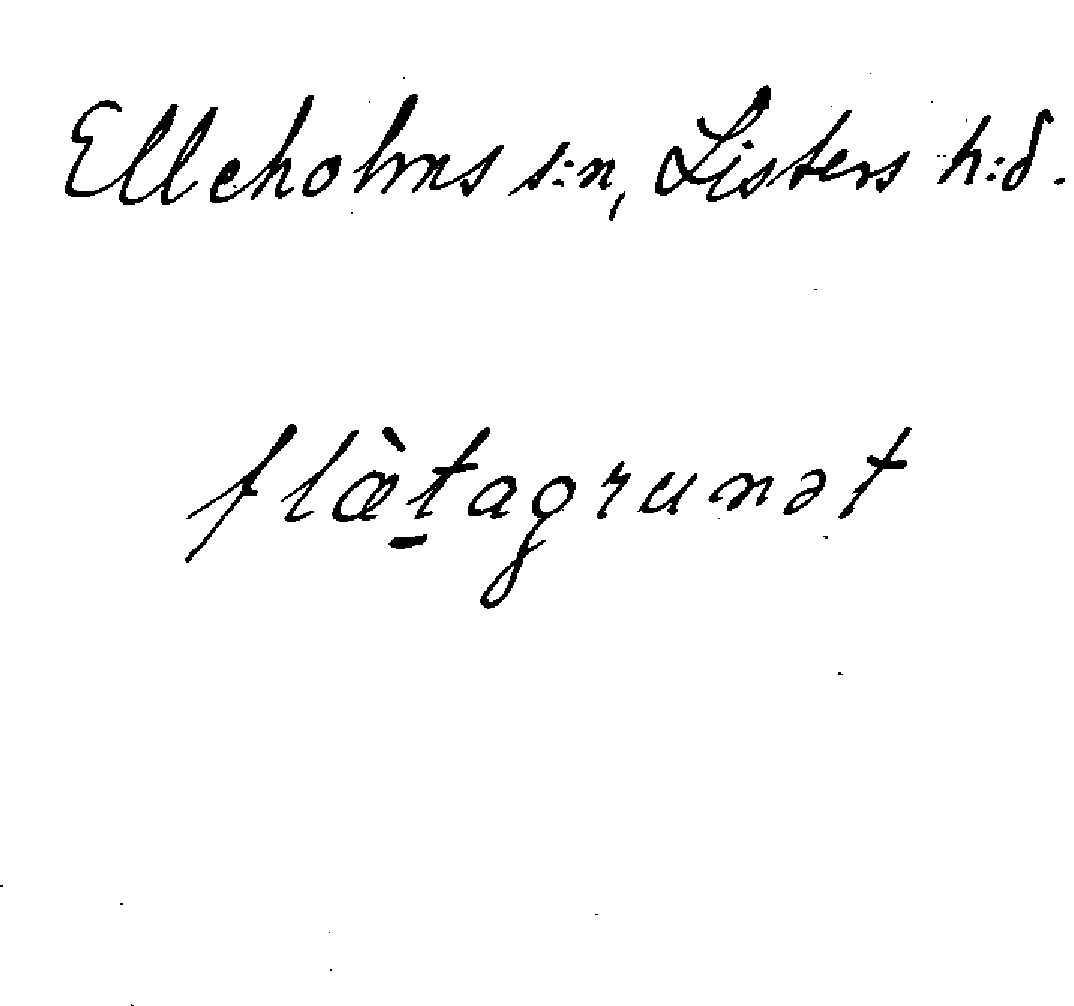 Elleholms s:n, Listers h:d.
flæ̀t̠agrunət